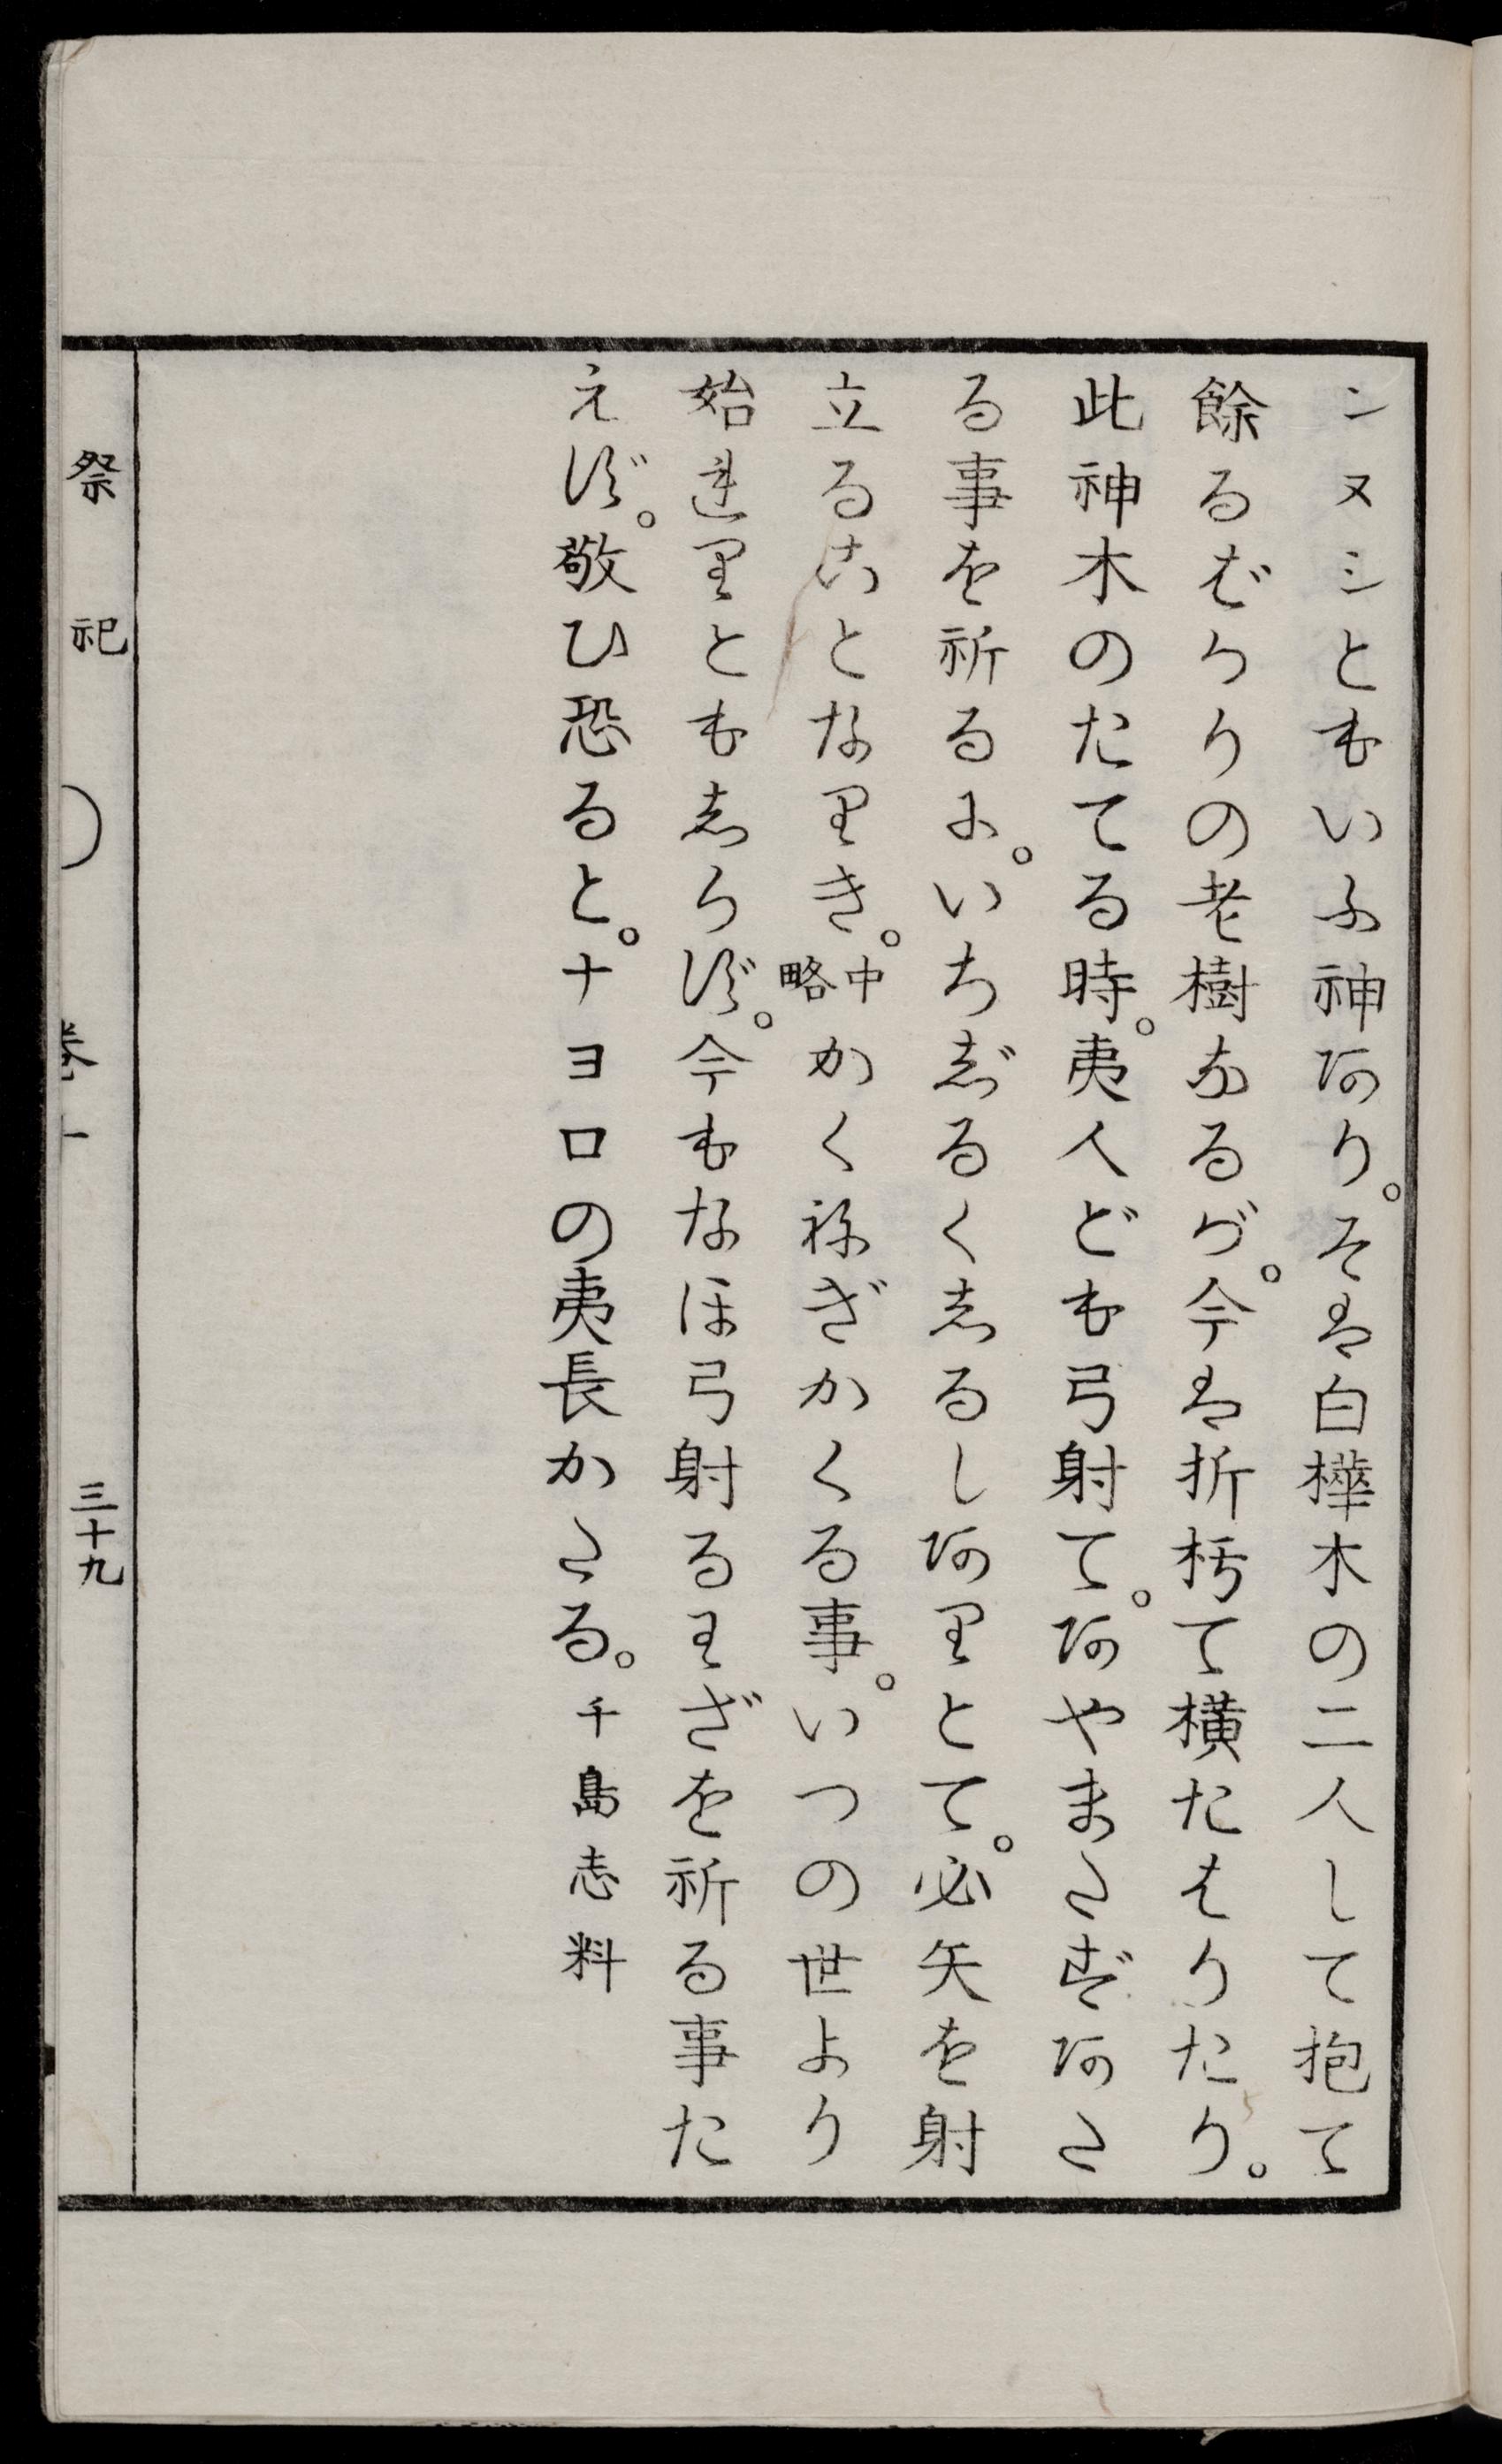 ンヌシともいふ神あり。そは白樺木の二人して抱て
餘るばかりの老樹なるが。今は折朽て横たはりたり。
此神木のたてる時。夷人ども弓射て。あやまたずあた
る事を祈るに。いちじるくしるしありとて。必矢を射
立ることなりき。中略かくねぎかくる事。いつの世より
始れりともしらず。今もなほ弓射るわざを祈る事た
えず。敬ひ恐ると。ナヨロの夷長かたる。千島志料
祭祀 三十九